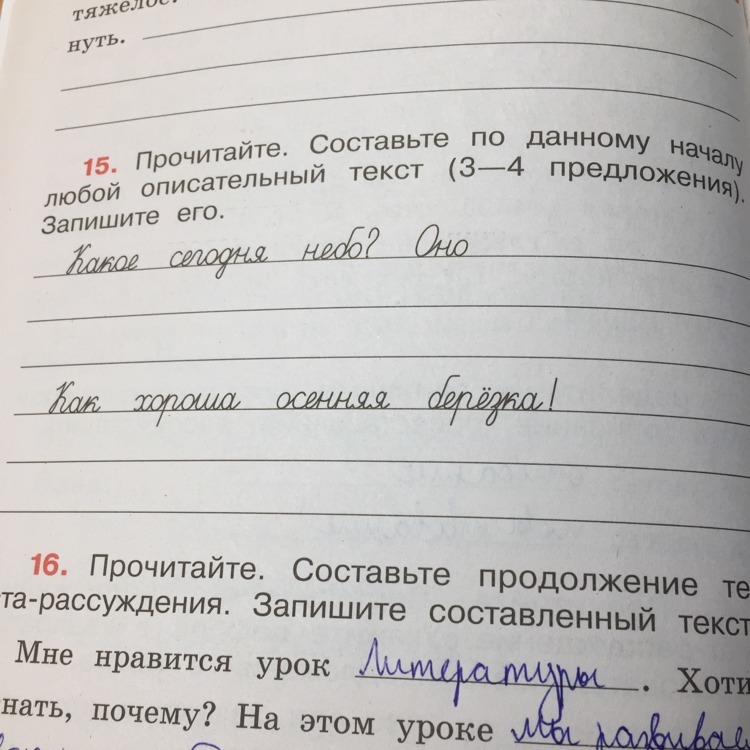 тяжелое.
нуть.
15. Прочитайте. Составьте по данному началу
любой описательный текст (3—4 предложения).
Запишите его.
Какое сегодня небо? Оно
Как хороша осенняя берёзка!
16. Прочитайте. Составьте продолжение те
ста-рассуждения. Запишите составленный текст
Мне нравится урок Литературы. Хоти
нать, почему? На этом уроке мы развивае